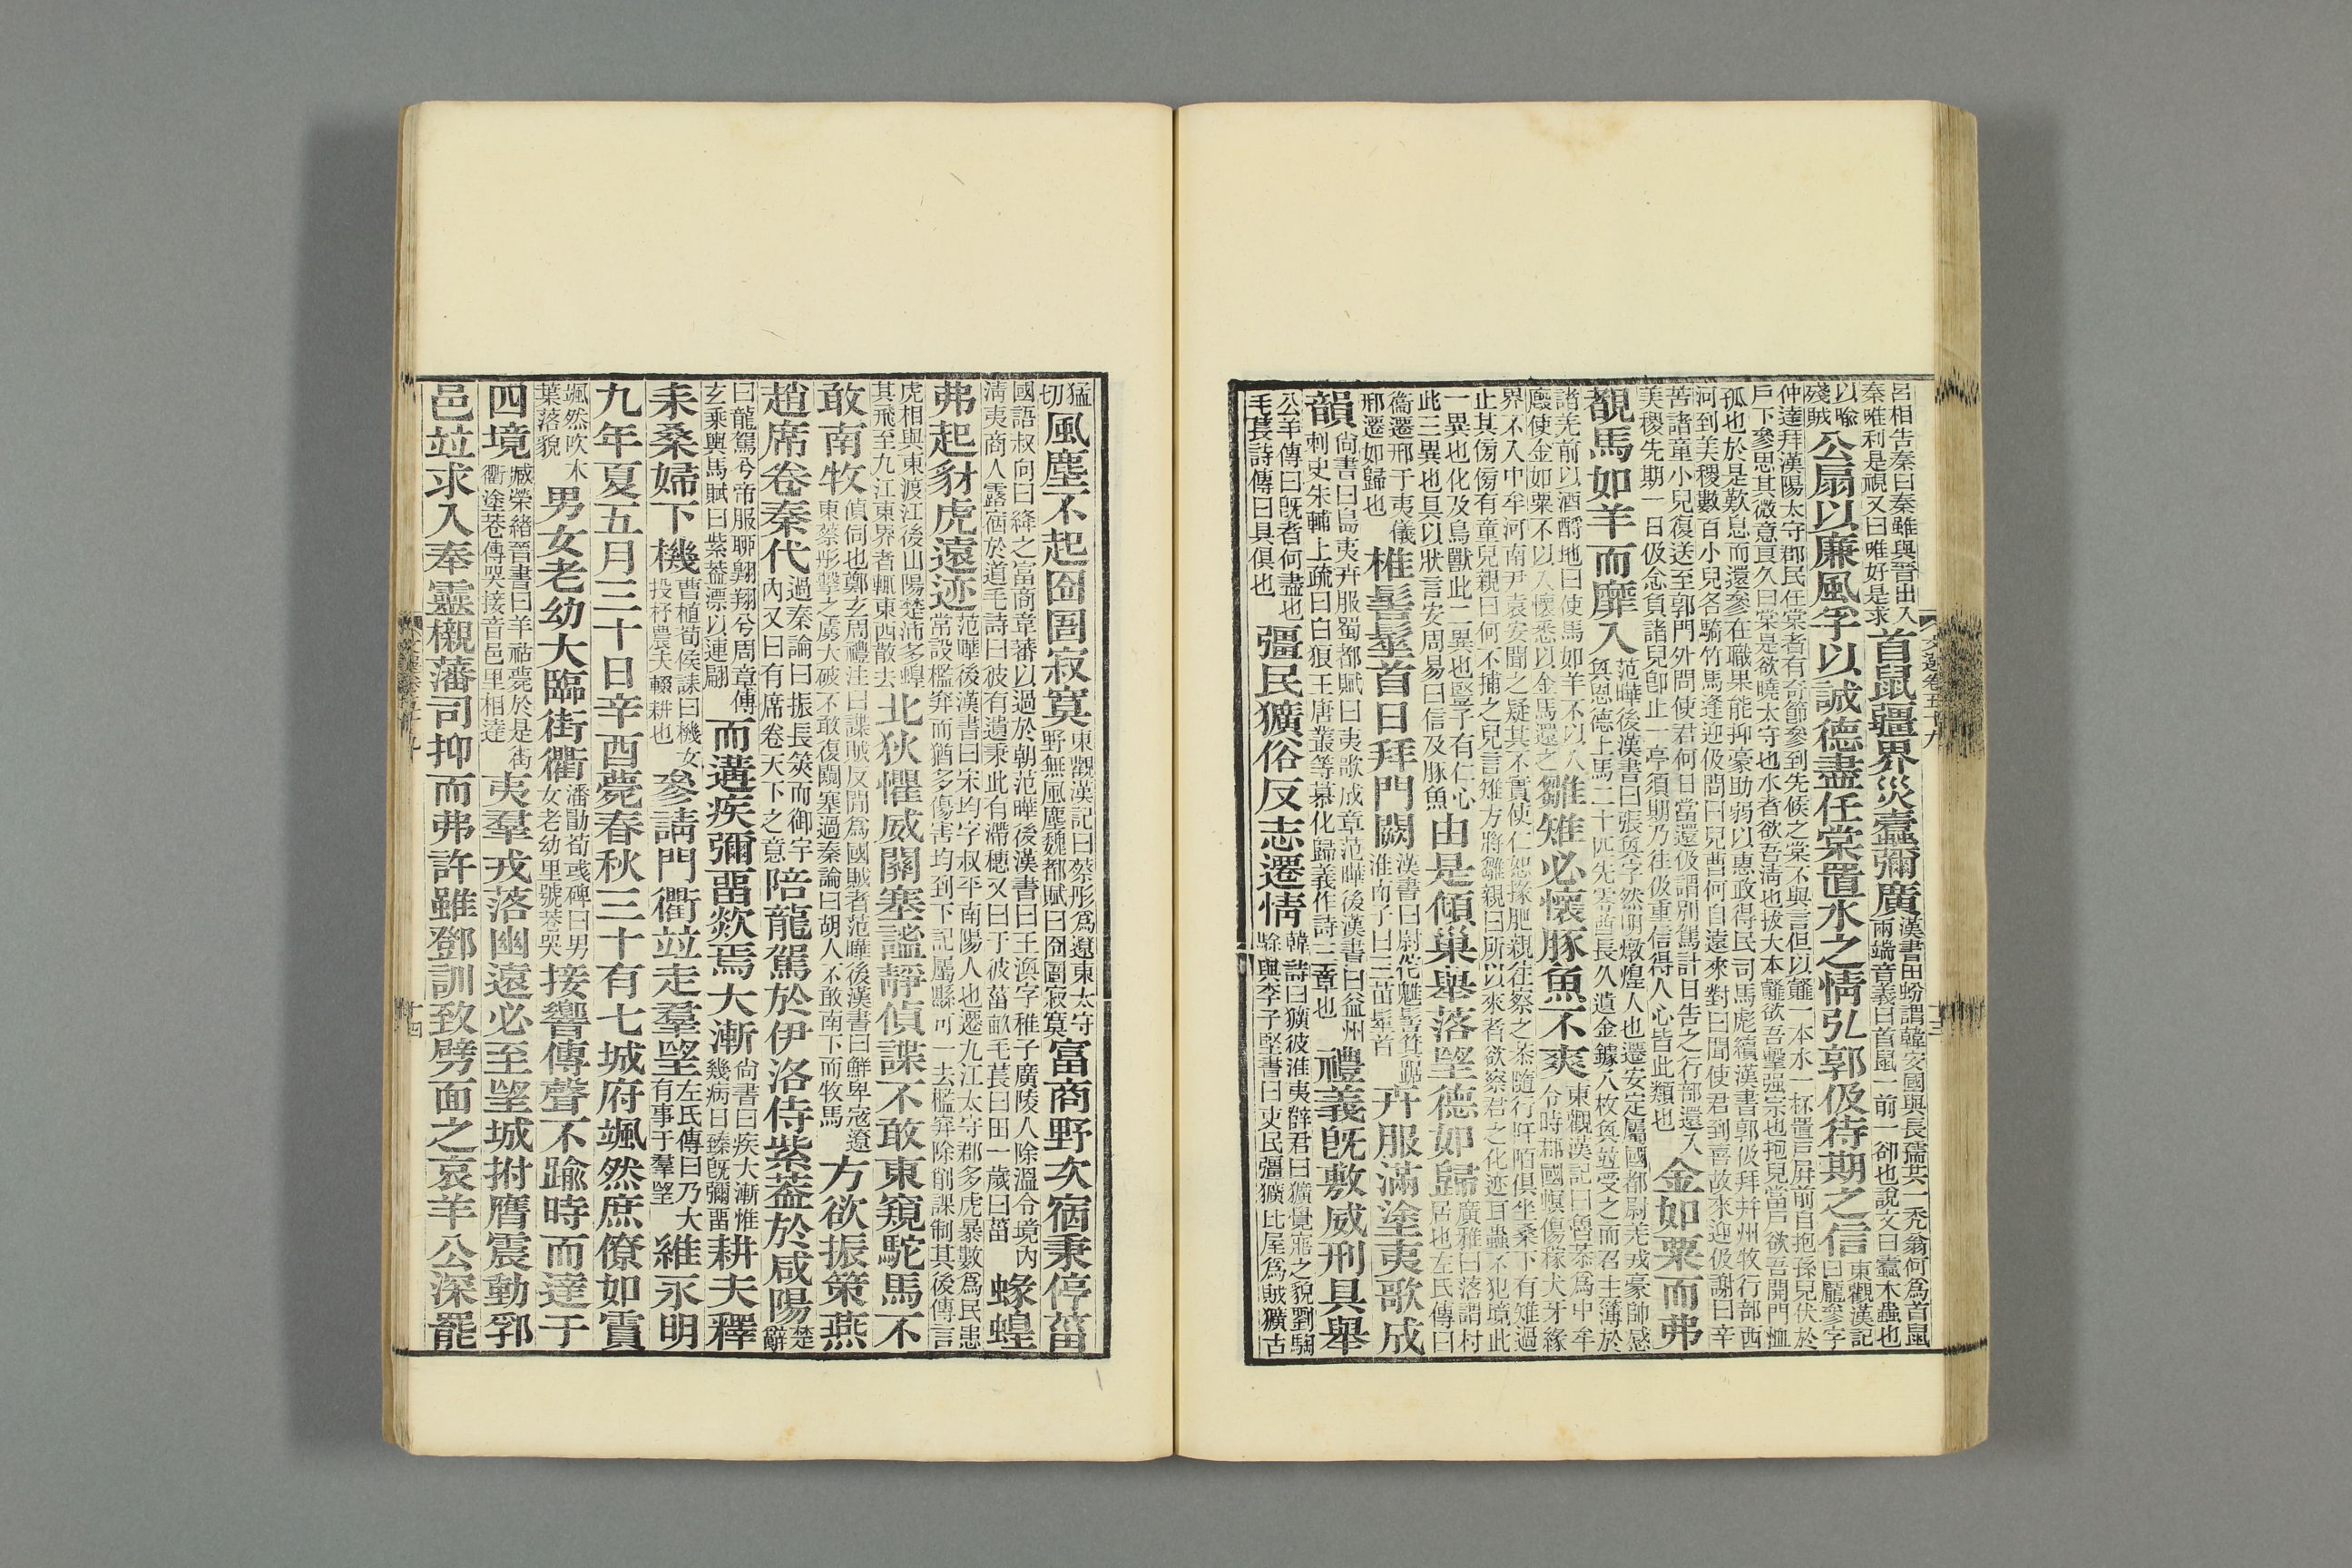 呂相告秦曰秦雖與晉出入
秦唯利是視又曰唯好是求
首鼠疆界災蠹彌廣
漢書田蚡謂韓安國與長孺共一禿翁何爲首鼠
兩端音義曰首鼠一前一郤也說文曰蠹木蟲也
以喻
殘賊
公扇以廉風孚以誠德盡任棠置水之情弘郭伋待期之信
東觀漢記
曰龐參字
仲達拜漢陽太守郡民任棠者有奇節參到先候之棠不與言但以䪥一本水一杯置戶屏前自抱孫兒伏於
戶下參思其微意良久曰棠是欲曉太守也水者欲吾清也拔大本䪥欲吾擊强宗也抱兒當戶欲吾開門恤
孤也於是歎息而還參在職果能抑豪助弱以惠政得民司馬彪續漢書郭伋拜并州牧行行部西
河到美稷數百小兒各騎竹馬逢迎伋問曰兒曹何自遠來對曰聞使君到喜故來迎伋謝曰辛
苦諸童小兒復送至郭門外問使君何日當還伋語別駕計日告之行部還入
美稷先期一日伋念負諸兒卽止一亭須期乃往伋重信得人心皆此類也
金如粟而弗
覩馬如羊而靡入
范曄後漢書曰張奐字然明燉煌人也遷安定屬國都尉羌戎豪帥感
奐恩德上馬二十匹先零酋長久遺金鐻八枚奐竝受之而召主簿於
諸羌前以酒酹地曰使馬如羊不以入
廄使金如粟不以入懷悉以金馬還之
雛雉必懷豚魚不爽
東觀漢記曰魯恭爲中牟
令時郡國螟傷稼犬牙緣
界不入中牟河南尹袁安聞之疑其不實使仁恕掾肥親往察之恭隨行阡陌俱坐桑下有雉過
止其傍傍有童兒親曰何不捕之兒言雉方將雛親曰所以來者欲察君之化迹耳蟲不犯境此
一異也化及鳥獸此二異也豎子有仁心
此三異也具以狀言安周易曰信及豚魚
由是傾巢舉落望德如歸
廣雅曰落謂村
居也左氏傳曰
衞遷邢于夷儀
邢遷如歸也
椎髻髽首日拜門闕
漢書曰尉佗魋髻箕踞
淮南子曰三苗髽首
卉服滿塗夷歌成
韻
尚書曰島夷卉服蜀都賦曰夷歌成章范曄後漢書曰益州
刺史朱輔上疏曰白狼王唐菆等慕化歸義作詩三章也
禮義旣敷威刑具舉
公羊傳曰旣者何盡也
毛萇詩傳曰具俱也
彊民獷俗反志遷情
韓詩曰獷彼淮夷辥君曰獷覺寤之貌劉騊
駼與李子堅書曰吏民彊獷比屋爲賊獷古
文選卷五十九
十三
猛
切
風塵不起囹圄寂寞
東觀漢記曰蔡彤爲遼東太守
野無風塵魏都賦曰囹圄寂寞
富商野次宿秉停菑
國語叔向曰絳之富商韋藩以過於朝范曄後漢書曰王渙字稚子廣陵人除溫令境內
淸夷商人露宿於道毛詩曰彼有遺秉此有滯穗又曰于彼菑畝毛萇曰田一歲曰菑
蝝蝗
弗起豺虎遠迹
范曄後漢書曰宋均字叔平南陽人也遷九江太守郡多虎暴數爲民患
常設檻穽而猶多傷害均到下記屬縣可一去檻穽除削課制其後傳言
虎相與東渡江後山陽楚沛多蝗
其飛至九江東界者輒東西散去
北狄懼威關塞謐靜偵諜不敢東窺駝馬不
敢南牧
偵伺也鄭玄周禮注曰諜賊反閒爲國賊者范曄後漢書曰鮮卑寇遼
東蔡彤擊之虜大破不敢復闚塞過秦論曰胡人不敢南下而牧馬
方欲振策燕
趙席卷秦代
過秦論曰振長策而御宇
內又曰有席卷天下之意
陪龍駕於伊洛侍紫蓋於咸陽
楚
辭
曰龍駕兮帝服聊翱翔兮周章傅
玄乘輿馬賦曰紫蓋漂以連翩
而遘疾彌畱欻焉大漸
尙書曰疾大漸惟
幾病日臻旣彌畱
耕夫釋
耒桑婦下機
曹植荀侯誄曰機女
投杼農夫輟耕也
參請門衢竝走羣望
左氏傳曰乃大
有事于羣望
維永明
九年夏五月三十日辛酉薨春秋三十有七城府颯然庶僚如霣
颯然吹木
葉落貌
男女老幼大臨街衢
潘勖荀彧碑曰男
女老幼里號巷哭
接響傳聲不踰時而達于
四境
臧榮緒晉書曰羊祜薨於是街
衢塗巷傳哭接音邑里相達
夷羣戎落幽遠必至望城拊膺震動郛
邑竝求入奉靈櫬藩司抑而弗許雖鄧訓致劈面之哀羊公深罷
十四